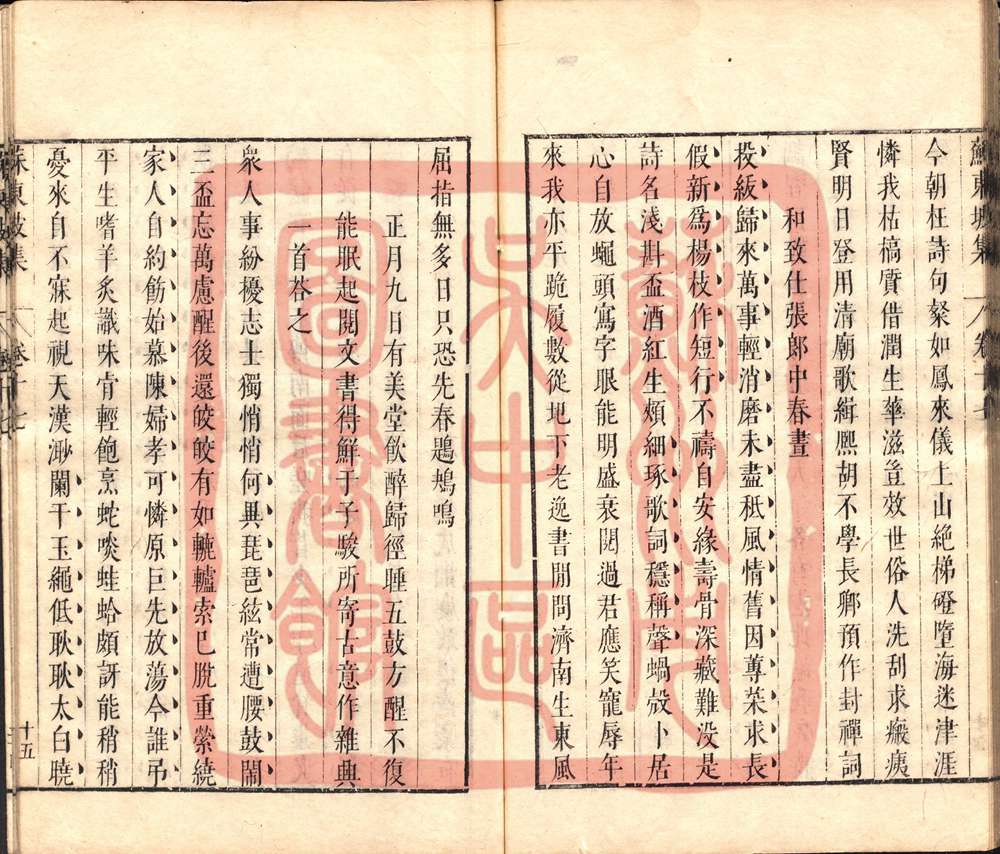 蘇東坡集 卷十七
今朝枉詩句粲如鳳來儀上山絶梯磴墮海迷津涯
憐我枯槁質借潤生華滋豈效世俗人洗刮求瘢痍
賢明日登用清廟歌緝熙胡不學長卿預作封禪詞
和致仕張郎中春晝
投紱歸來萬事輕消磨未盡秪風情舊因蓴菜求長
假新爲楊枝作短行不禱自安緣壽骨深藏難没是
詩名淺斟盃酒紅生頰細琢歌詞穩稱聲蝸殻卜居
心自放蠅頭寫字眼能明盛衰閱過君應笑寵辱年
來我亦平跪履數從地下老逸書閒問濟南生東風
屈指無多日只恐先春鶗鴂鳴
正月九日有美堂飲醉歸徑睡五鼓方醒不復
能眠起閱文書得鮮于子駿所寄古意作雜興
一首荅之
衆人事紛擾志士獨悄悄何異琵琶絃常遭腰鼓鬧
三盃忘萬慮醒後還皎皎有如轆轤索已脱重縈繞
家人自約飭始慕陳婦孝可憐原巨先放蕩今誰弔
平生嗜羊炙識味肯輕飽烹蛇啖蛙蛤頗訝能稍稍
憂來自不寐起視天漢渺闌干玉繩低耿耿太白曉
蘇東坡集 卷十七
十五
蘇州市
吴中區
圖書館